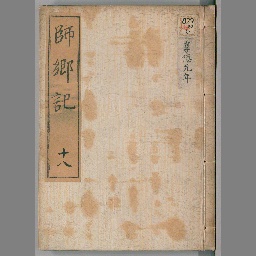 師郷記
十八
享徳元年